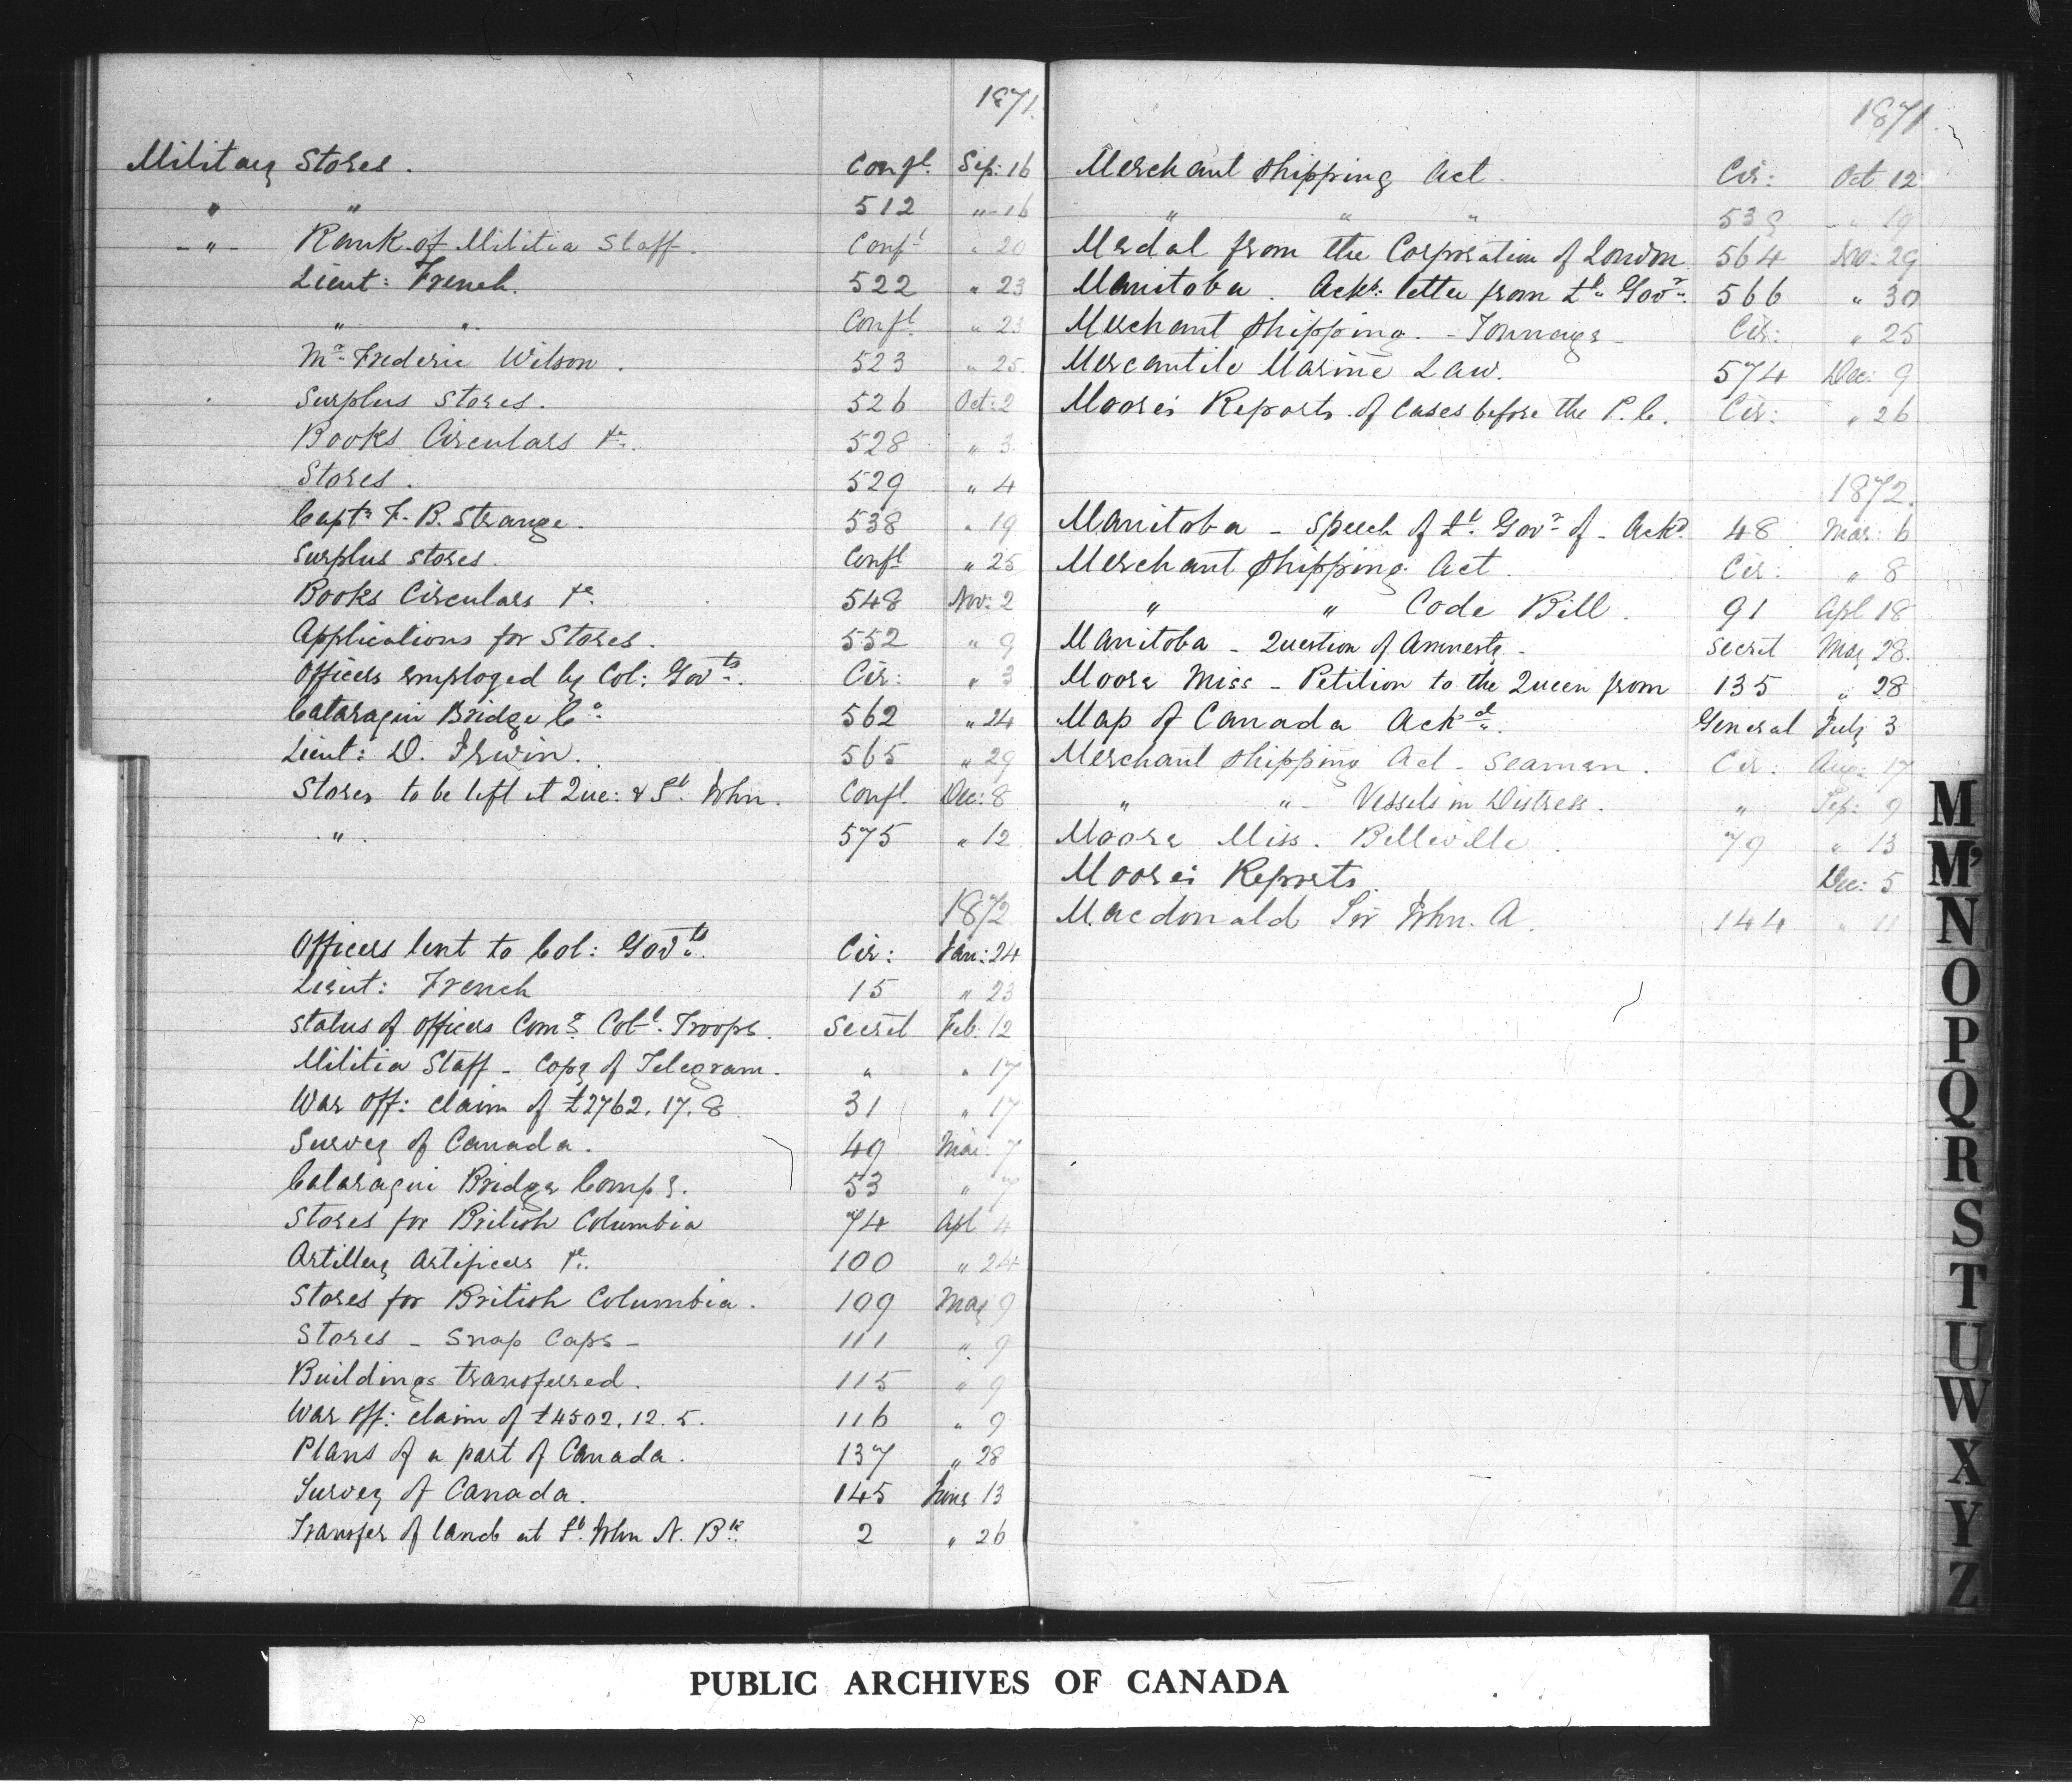 1871.
Military Stores. Confl. Sep: 16
" " 512 " 16
- " - Rank of Militia Staff. Confl " 20
Lieut: French. 522 " 23
" " Confl " 23
Mr. Frederic Wilson. 523 " 25.
Surplus Stores. 526 Oct: 2
Books Circulars &c. 528 " 3
Stores. 529 " 4
Captn F. B. Strange. 538 " 19
Surplus Stores. Confl " 25
Books Circulars &c. 548 Nov: 2
Applications for Stores. 552 " 9
Officers employed by Col: Govts. Cir: " 3
Cataraqui Bridge Co. 562 " 24
Lieut: D. Irwin. 565 " 29
Stores to be left at Que: & St. John. Confl. Dec: 8
" 575 " 12
1872
Officers lent to Col: Govts. Cir: Jan: 24
Lieut: French 15 " 23
Status of Officers Comg Coll. Troops. Secret Feb: 12
Militia Staff - Copy of Telegram. " " 17
War Off: Claim of £2762. 17. 8 31 " 17
Survey of Canada. 49 Mar: 7
Cataraqui Bridge Compy. 53 " 7
Stores for British Columbia 74 Apl 4
Artillery Artificers &c. 100 " 24
Stores for British Columbia. 109 May 9
Stores - Snap Caps - 111 " 9
Buildings transferred. 115 " 9
War Off: Claim of £4302. 12. 5. 116 " 9
Plans of a part of Canada. 137 " 28
Survey of Canada. 145 June 13
Transfer of land at St. John N. Bk. 2 " 26
1871.
Merchant Shipping Act. Cir: Oct. 12
" " " 539 " 19
Medal from the Corporation of London 564 Nov: 29
Manitoba. Ackg: letter from Lt. Govr. 566 " 30
Merchant Shipping. - Tonnage - Cir: " 25
Mercantile Marine Law. 574 Dec: 9
Moore's Reports of Cases before the P. C. Cir: " 26
1872.
Manitoba - Speech of Lt. Govr of - Ackd. 48 Mar: 6
Merchant Shipping Act. Cir: " 8
" " Code Bill. 91 Apl 18
Manitoba - Question of Amnesty - Secret May 28.
Moore Miss - Petition to the Queen from 135 " 28
Map of Canada Ackd. General July 3
Merchant Shipping Act - Seamen. Cir: Aug: 17
" " - Vessels in Distress. " Sep: 9
Moore Miss. Belleville. 79 " 13
Moore's Reports. Dec: 5
Macdonald Sir John. A. 144 " 11
M
Mc
N
O
P
Q
R
S
T
U
W
X
Y
Z
PUBLIC ARCHIVES OF CANADA